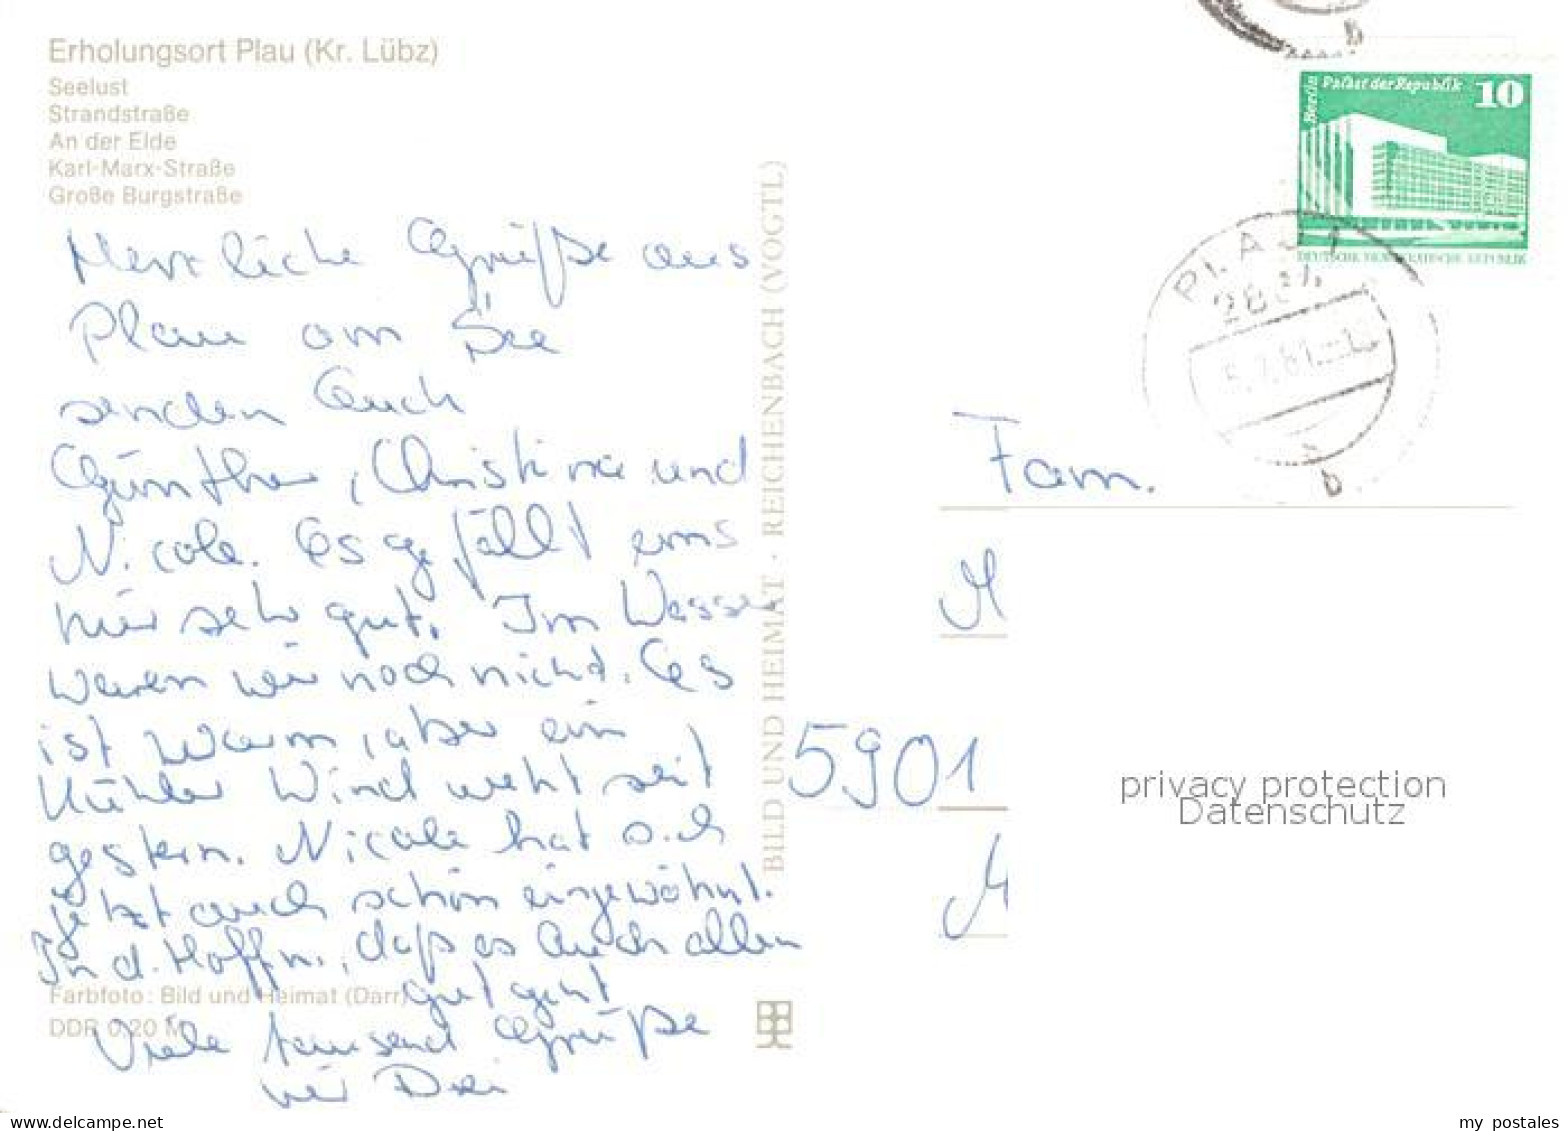 Erholungsort Plau (Kr. Lübz)
Seelust
Strandstraße
An der Elde
Karl-Marx-Straße
Große Burgstraße
Herzliche Grüße aus
Plau am See
senden Euch
Günther, Christina und
Nicole. Es gefällt uns
hier sehr gut. Im Wasser
waren wir noch nicht. Es
ist warm, aber ein
kühler Wind weht seit
gestern. Nicole hat sich
jetzt auch schön eingewöhnt.
In d. Hoffn., daß es Euch allen
gut geht
Viele tausend Grüße
wir Drei
Farbfoto: Bild und Heimat (Darr)
DDR 0,20 M
BILD UND HEIMAT · REICHENBACH (VOGTL)
Berlin
Palast der Republik
10
DEUTSCHE DEMOKRATISCHE REPUBLIK
PLAU 1
b
b
Fam.
M
5901
M
privacy protection
Datenschutz
www.delcampe.net
my_postales